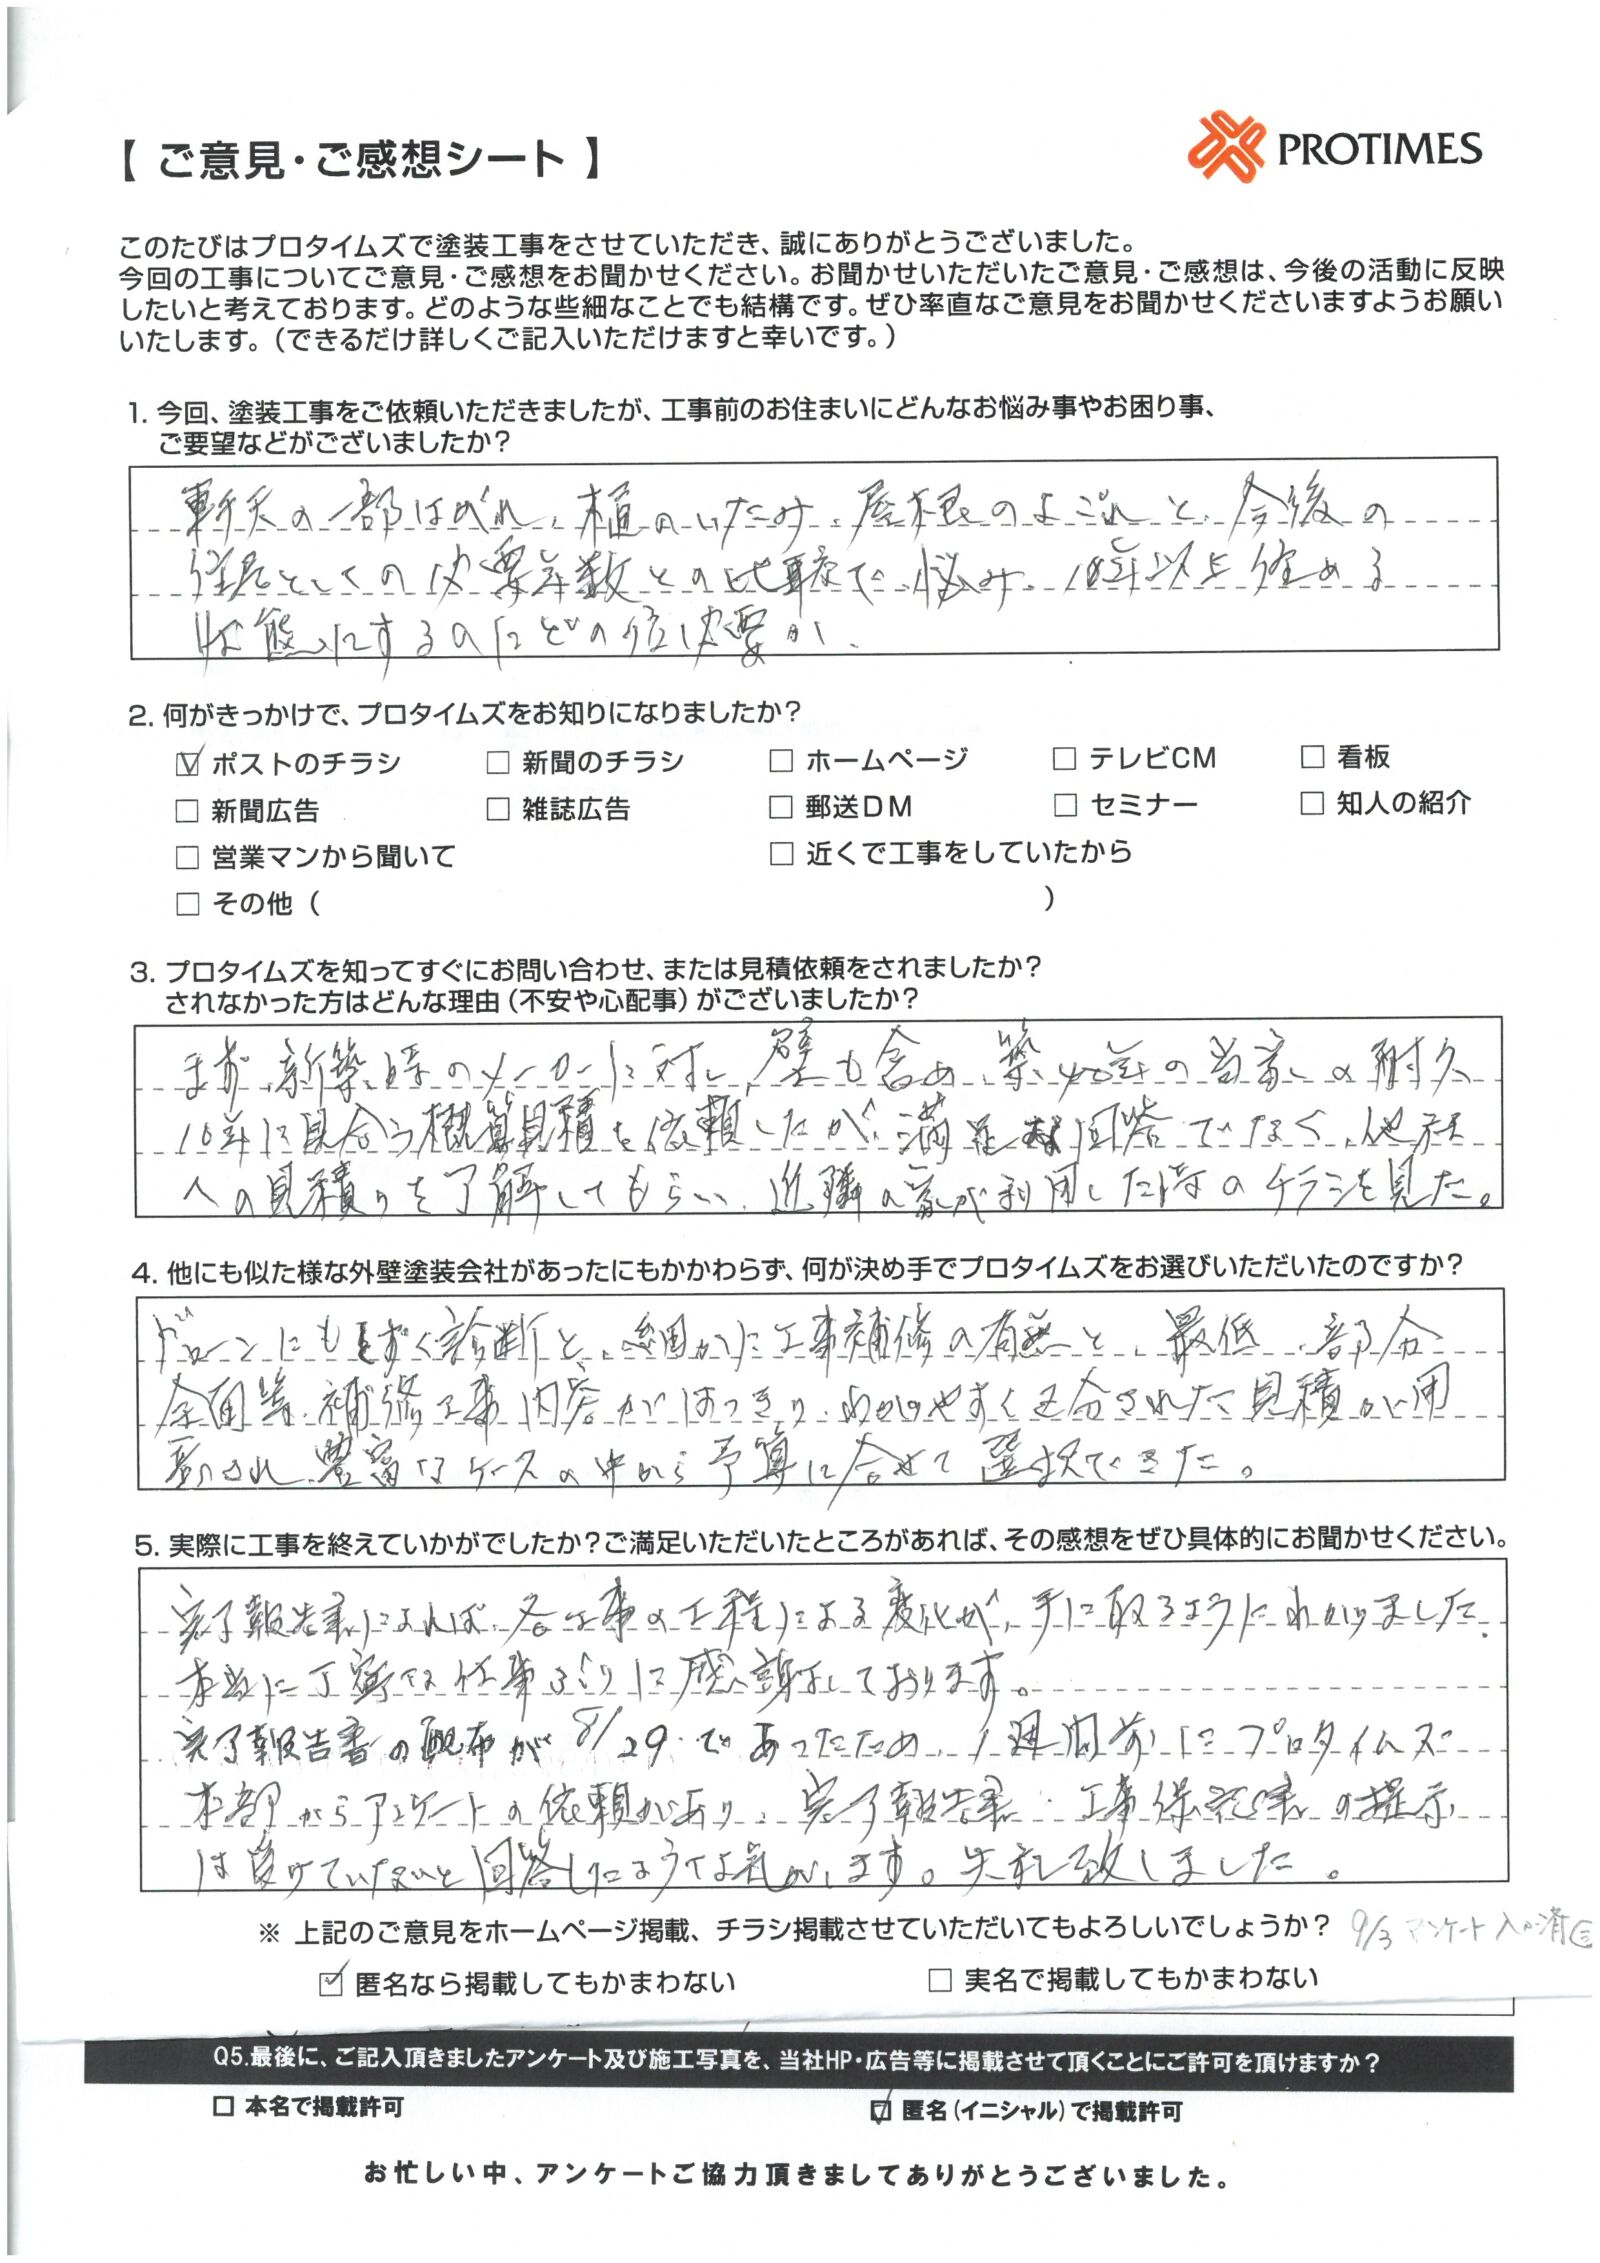 【 ご意見・ご感想シート 】
PROTIMES
このたびはプロタイムズで塗装工事をさせていただき、誠にありがとうございました。
今回の工事についてご意見・ご感想をお聞かせください。お聞かせいただいたご意見・ご感想は、今後の活動に反映
したいと考えております。どのような些細なことでも結構です。ぜひ率直なご意見をお聞かせくださいますようお願い
いたします。（できるだけ詳しくご記入いただけますと幸いです。）
1. 今回、塗装工事をご依頼いただきましたが、工事前のお住まいにどんなお悩み事やお困り事、
ご要望などがございましたか？
軒天の一部はがれ、樋のいたみ、屋根のよごれと、今後の
住居としての必要年数との比較で悩み、10年以上住める
状態にするのにどの位必要か、
2. 何がきっかけで、プロタイムズをお知りになりましたか？
☑ ポストのチラシ □ 新聞のチラシ □ ホームページ □ テレビCM □ 看板
□ 新聞広告 □ 雑誌広告 □ 郵送DM □ セミナー □ 知人の紹介
□ 営業マンから聞いて □ 近くで工事をしていたから
□ その他（ ）
3. プロタイムズを知ってすぐにお問い合わせ、または見積依頼をされましたか？
されなかった方はどんな理由（不安や心配事）がございましたか？
まず、新築時のメーカーに対し、壁も含め、築40年の当家の耐久
10年に見合う概算見積を依頼したが、満足な回答でなく、他社
への見積りを了解してもらい、近隣の家が利用した時のチラシを見た。
4. 他にも似た様な外壁塗装会社があったにもかかわらず、何が決め手でプロタイムズをお選びいただいたのですか？
ドローンにもとずく診断と、細かに工事補修の有無と、最低、部分
全面等、補修工事内容がはっきり、わかりやすく区分された見積が用
意され、豊富なケースの中から予算に合せて選択できた。
5. 実際に工事を終えていかがでしたか？ご満足いただいたところがあれば、その感想をぜひ具体的にお聞かせください。
完了報告書によれば、各工事の工程による変化が、手に取るようにわかりました。
本当に丁寧な仕事ぶりに感謝しております。
完了報告書の配布が8/29であったため、1週間前にプロタイムズ
本部からアンケートの依頼があり、完了報告書・工事保証書の提示
は受けていないと回答したような気がします。失礼致しました。
※ 上記のご意見をホームページ掲載、チラシ掲載させていただいてもよろしいでしょうか？ 9/3 アンケート入力済
☑ 匿名なら掲載してもかまわない □ 実名で掲載してもかまわない
Q5.最後に、ご記入頂きましたアンケート及び施工写真を、当社HP・広告等に掲載させて頂くことにご許可を頂けますか？
□ 本名で掲載許可 ☑ 匿名（イニシャル）で掲載許可
お忙しい中、アンケートご協力頂きましてありがとうございました。